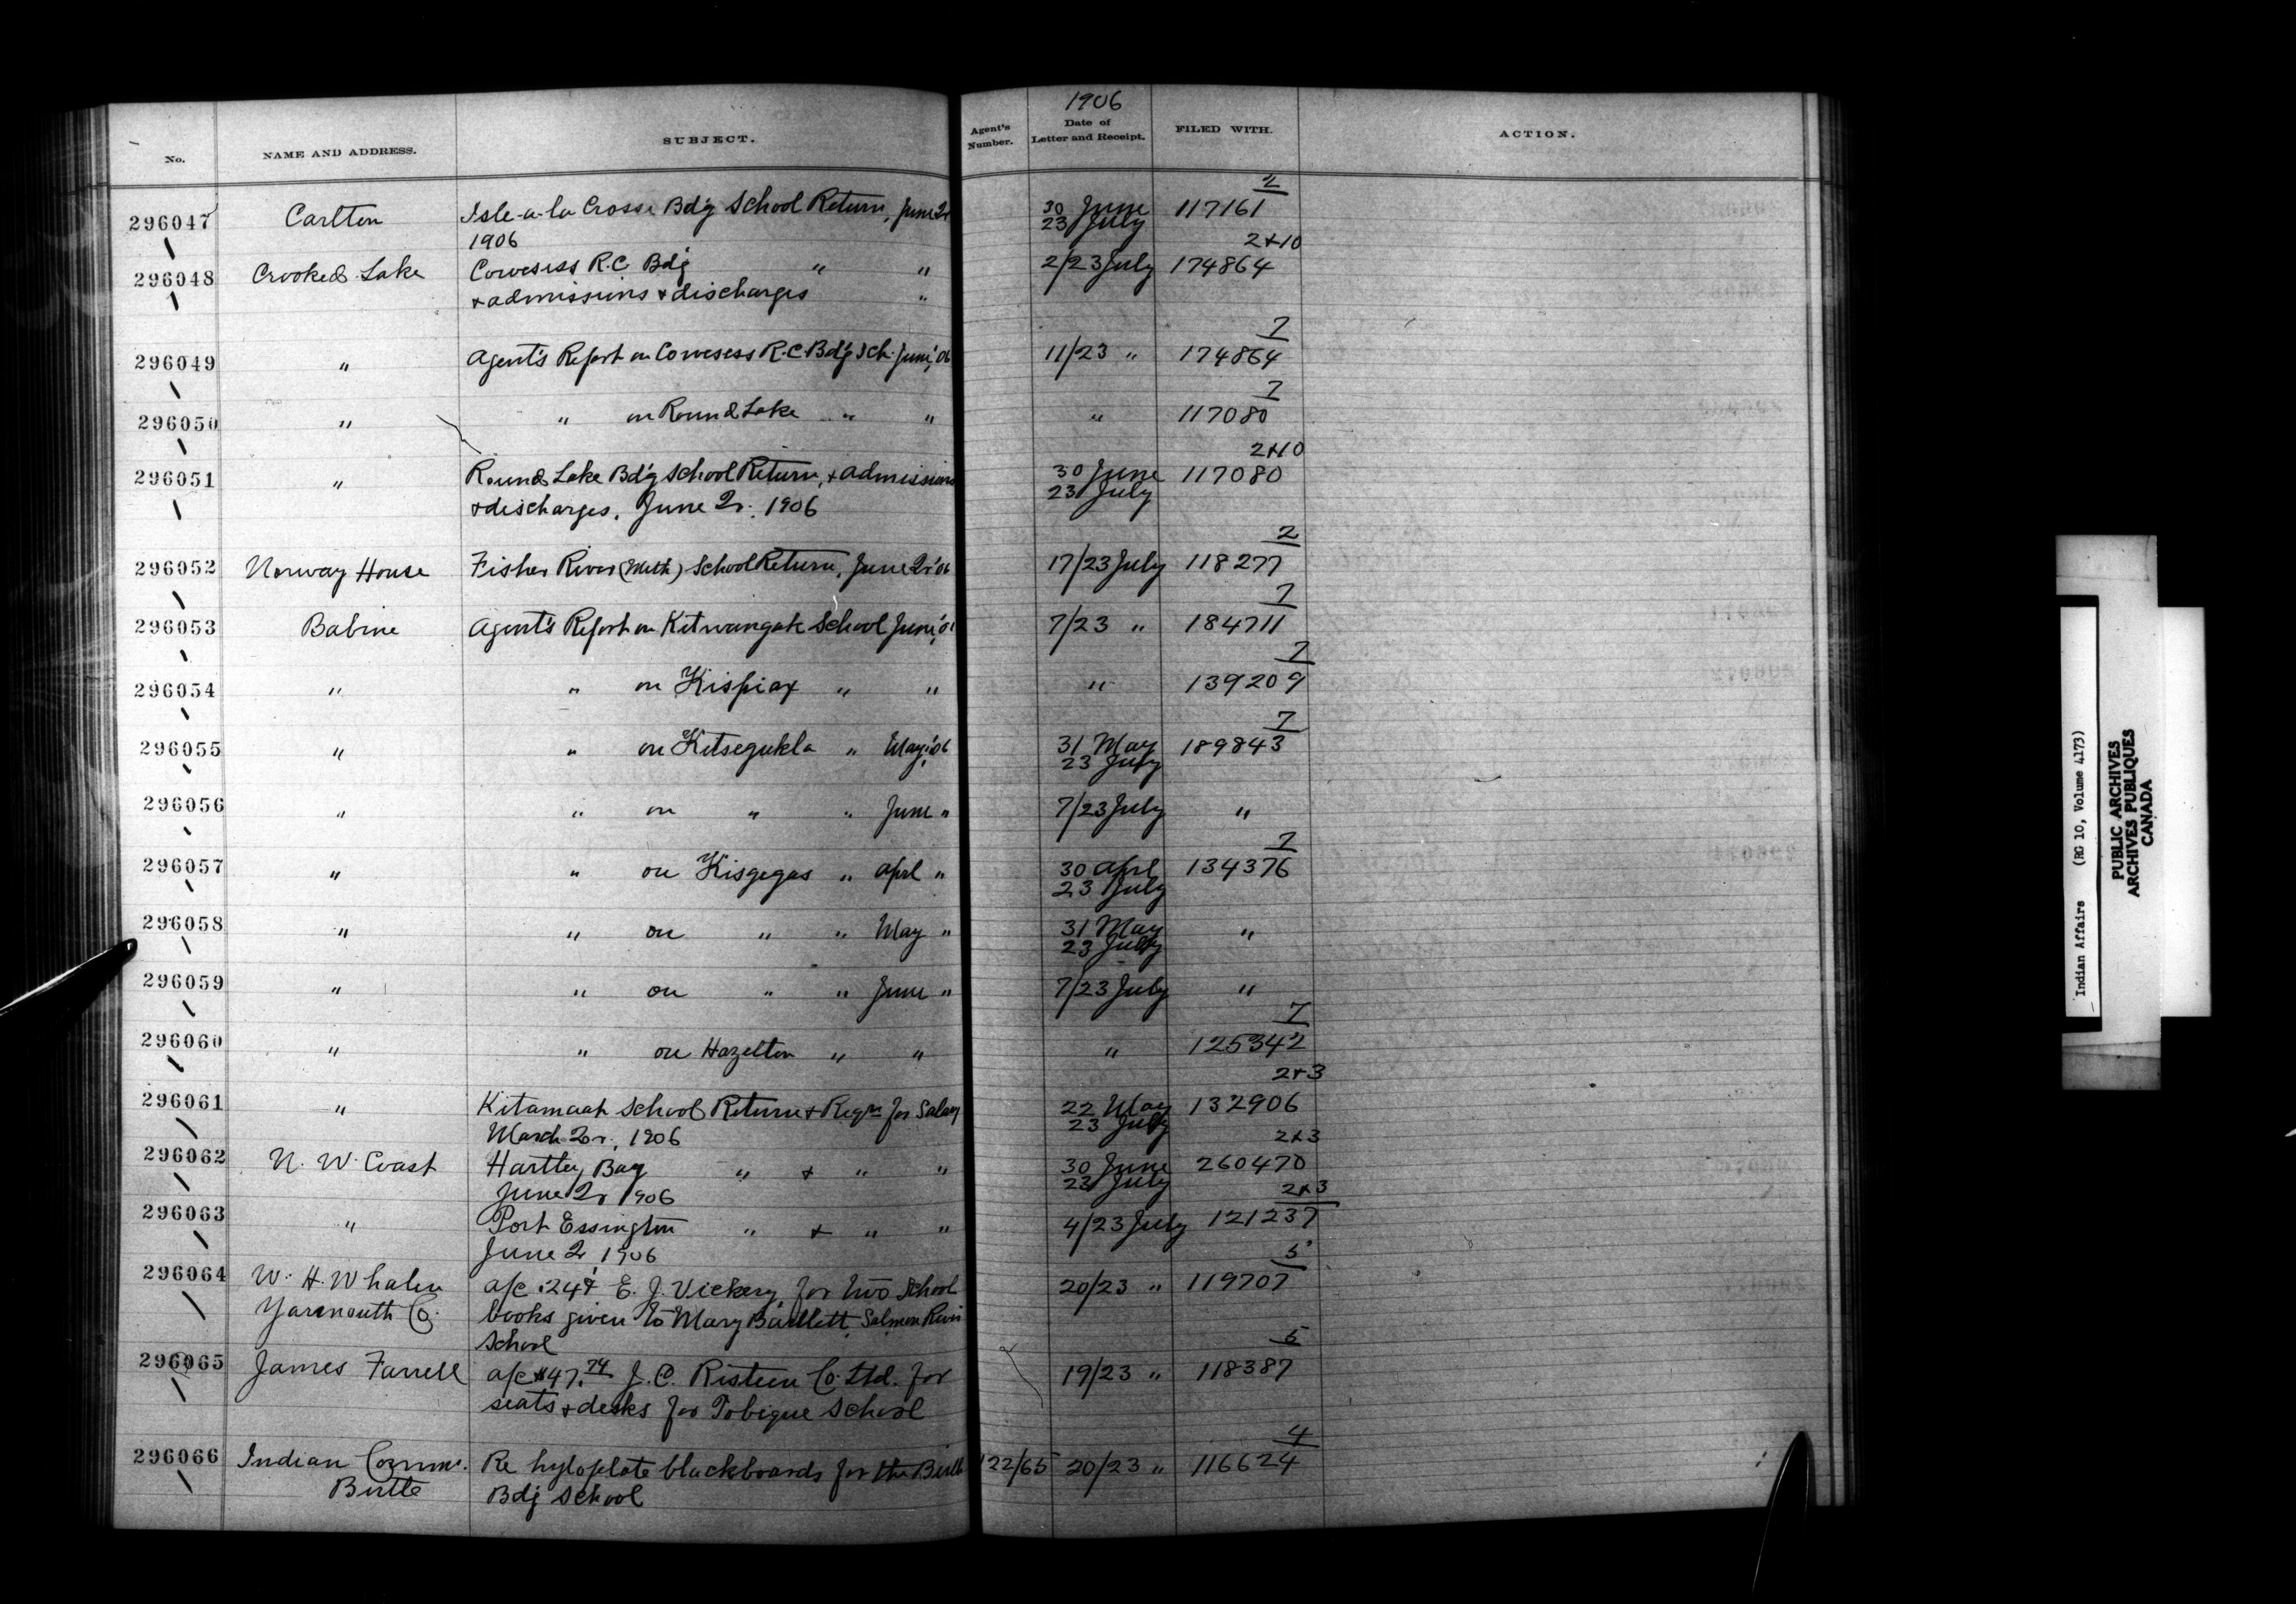 1906
No. NAME AND ADDRESS. SUBJECT. Agent's Number. Date of Letter and Receipt. FILED WITH. ACTION.
2
296047 Carlton Isle-a-la Crosse Bdg School Return, June 2r 30 June 117161
1906 23 July
2+10
296048 Crooked Lake Cowesess R.C. Bdg " " 2/23 July 174864
+ admissions + discharges "
7
296049 " Agent's Report on Cowesess R.C. Bdg Sch. June, '06 11/23 " 174864
7
296050 " " on Round Lake " " " 117080
2+10
296051 " Round Lake Bdg School Return, + admissions 30 June 117080
+ discharges, June 2r. 1906 23 July
2
296052 Norway House Fisher River (Meth) School Return, June 2r '06 17/23 July 118277
7
296053 Babine Agent's Report on Kitwangak School June, '0 7/23 " 184711
7
296054 " " on Kispiax " " " 139209
7
296055 " " on Kitsegukla " May, '06 31 May 189843
23 July
296056 " " on " " June " 7/23 July "
7
296057 " " on Kisgegas " April " 30 April 134376
23 July
296058 " " on " " May " 31 May "
23 July
296059 " " on " " June " 7/23 July "
7
296060 " " on Hazelton " " " 125342
2+3
296061 " Kitamaat School Return + Reqn for Salary 22 May 132906
March 2r, 1906 23 July
2+3
296062 N. W. Coast Hartley Bay " + " " 30 June 260470
June 2r 1906 23 July
2+3
296063 " Port Essington " + " " 4/23 July 121237
June 2, 1906
5
296064 W. H. Whalen a/c .24¢ E. J. Vickery, for two School 20/23 " 119707
Yarmouth Co. books given to Mary Bartlett, Salmon River
School
5
296065 James Farrell a/c $47.74 J. C. Risteen Co. Ltd. for 19/23 " 118387
seats + desks for Tobique School
4
296066 Indian Commr. Re hyloplate blackboards for the Birtle 122/65 20/23 " 116624
Birtle Bdg School
Indian Affairs (RG 10, Volume 4173)
PUBLIC ARCHIVES
ARCHIVES PUBLIQUES
CANADA